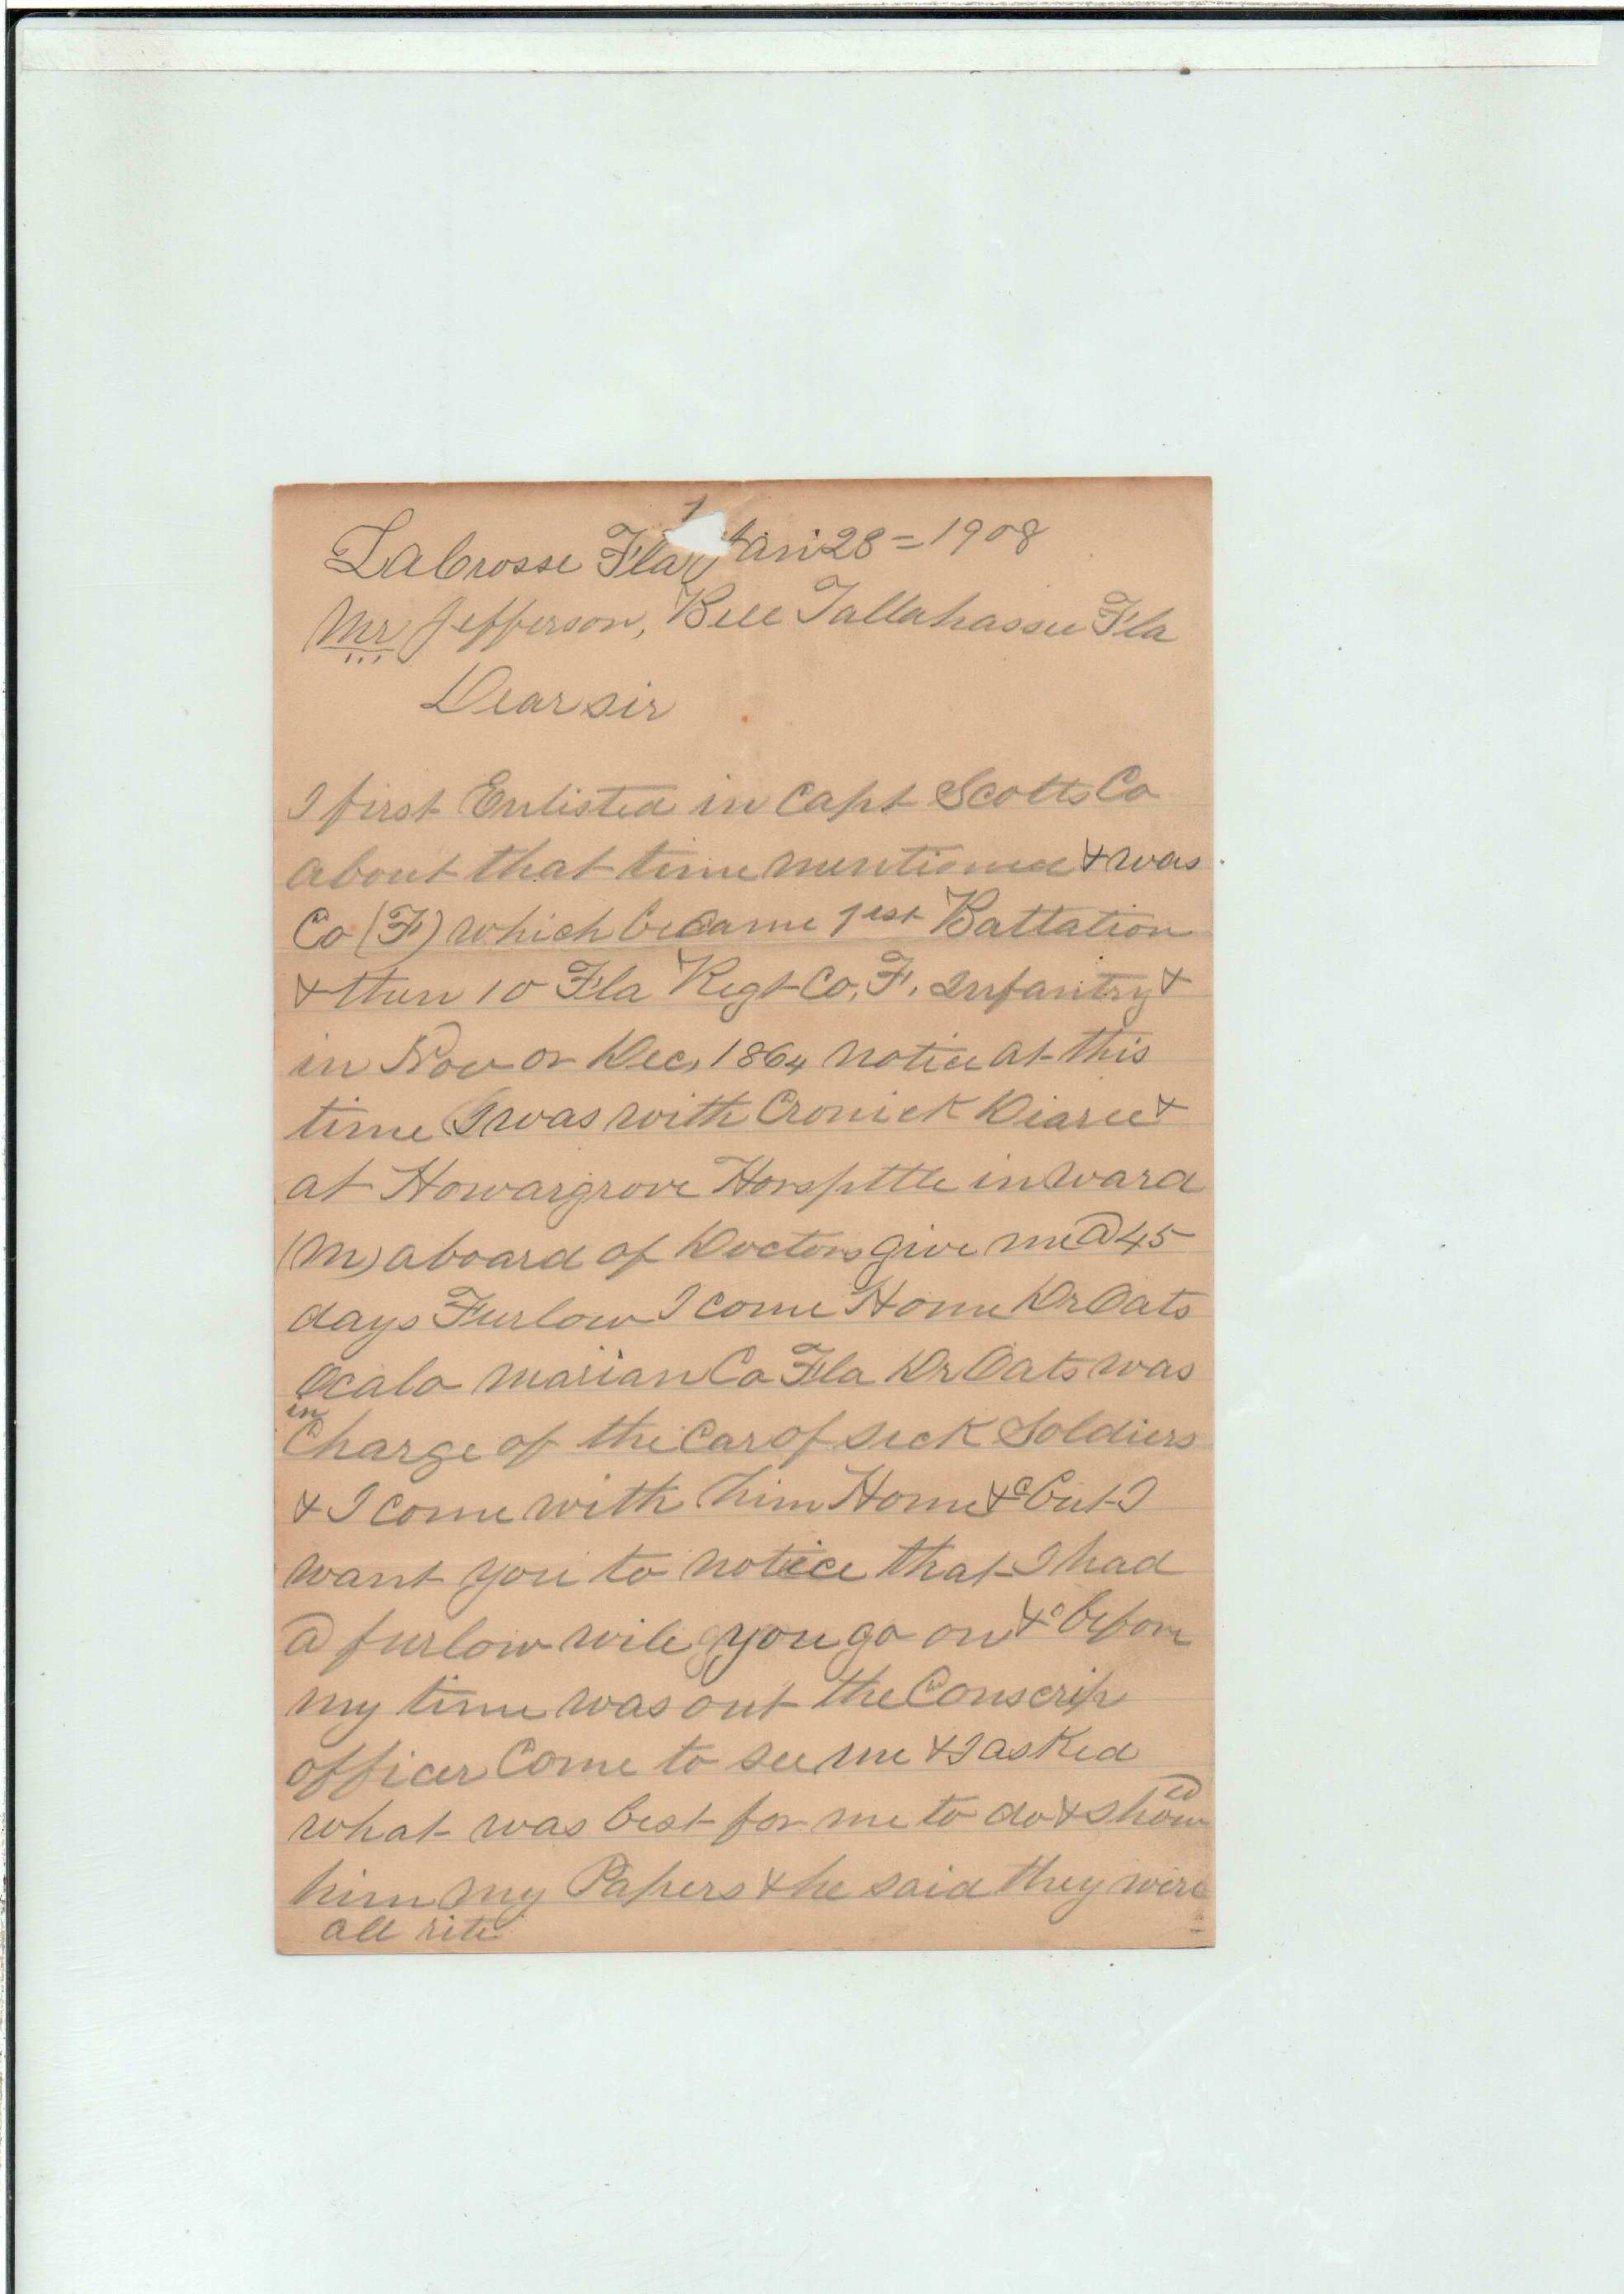 1
LaCrosse Fla Jan 28=1908
Mr Jefferson, Bell Tallahassee Fla
Dear sir
I first Enlisted in Capt Scotts Co
about that time mentioned & was
Co (F) which became 1est Battation
& then 10 Fla Regt Co, F, Infantry &
in Nov or Dec, 1864 notice at this
time I was with Cronick Diaree &
at Howargrove Horspittle in Ward
(M) aboard of Doctors give me a 45
days Furlow I come Home Dr Oats
Ocala marian Co Fla Dr Oats was
in
Charge of the Car of seck Soldiers
& I come with him Home &c but I
want you to notice that I had
a furlow wile you go on &c before
my time was out the Conscrip
officer Come to see me & I asked
what was best for me to do & showed
him my Papers & he said they were
all rite